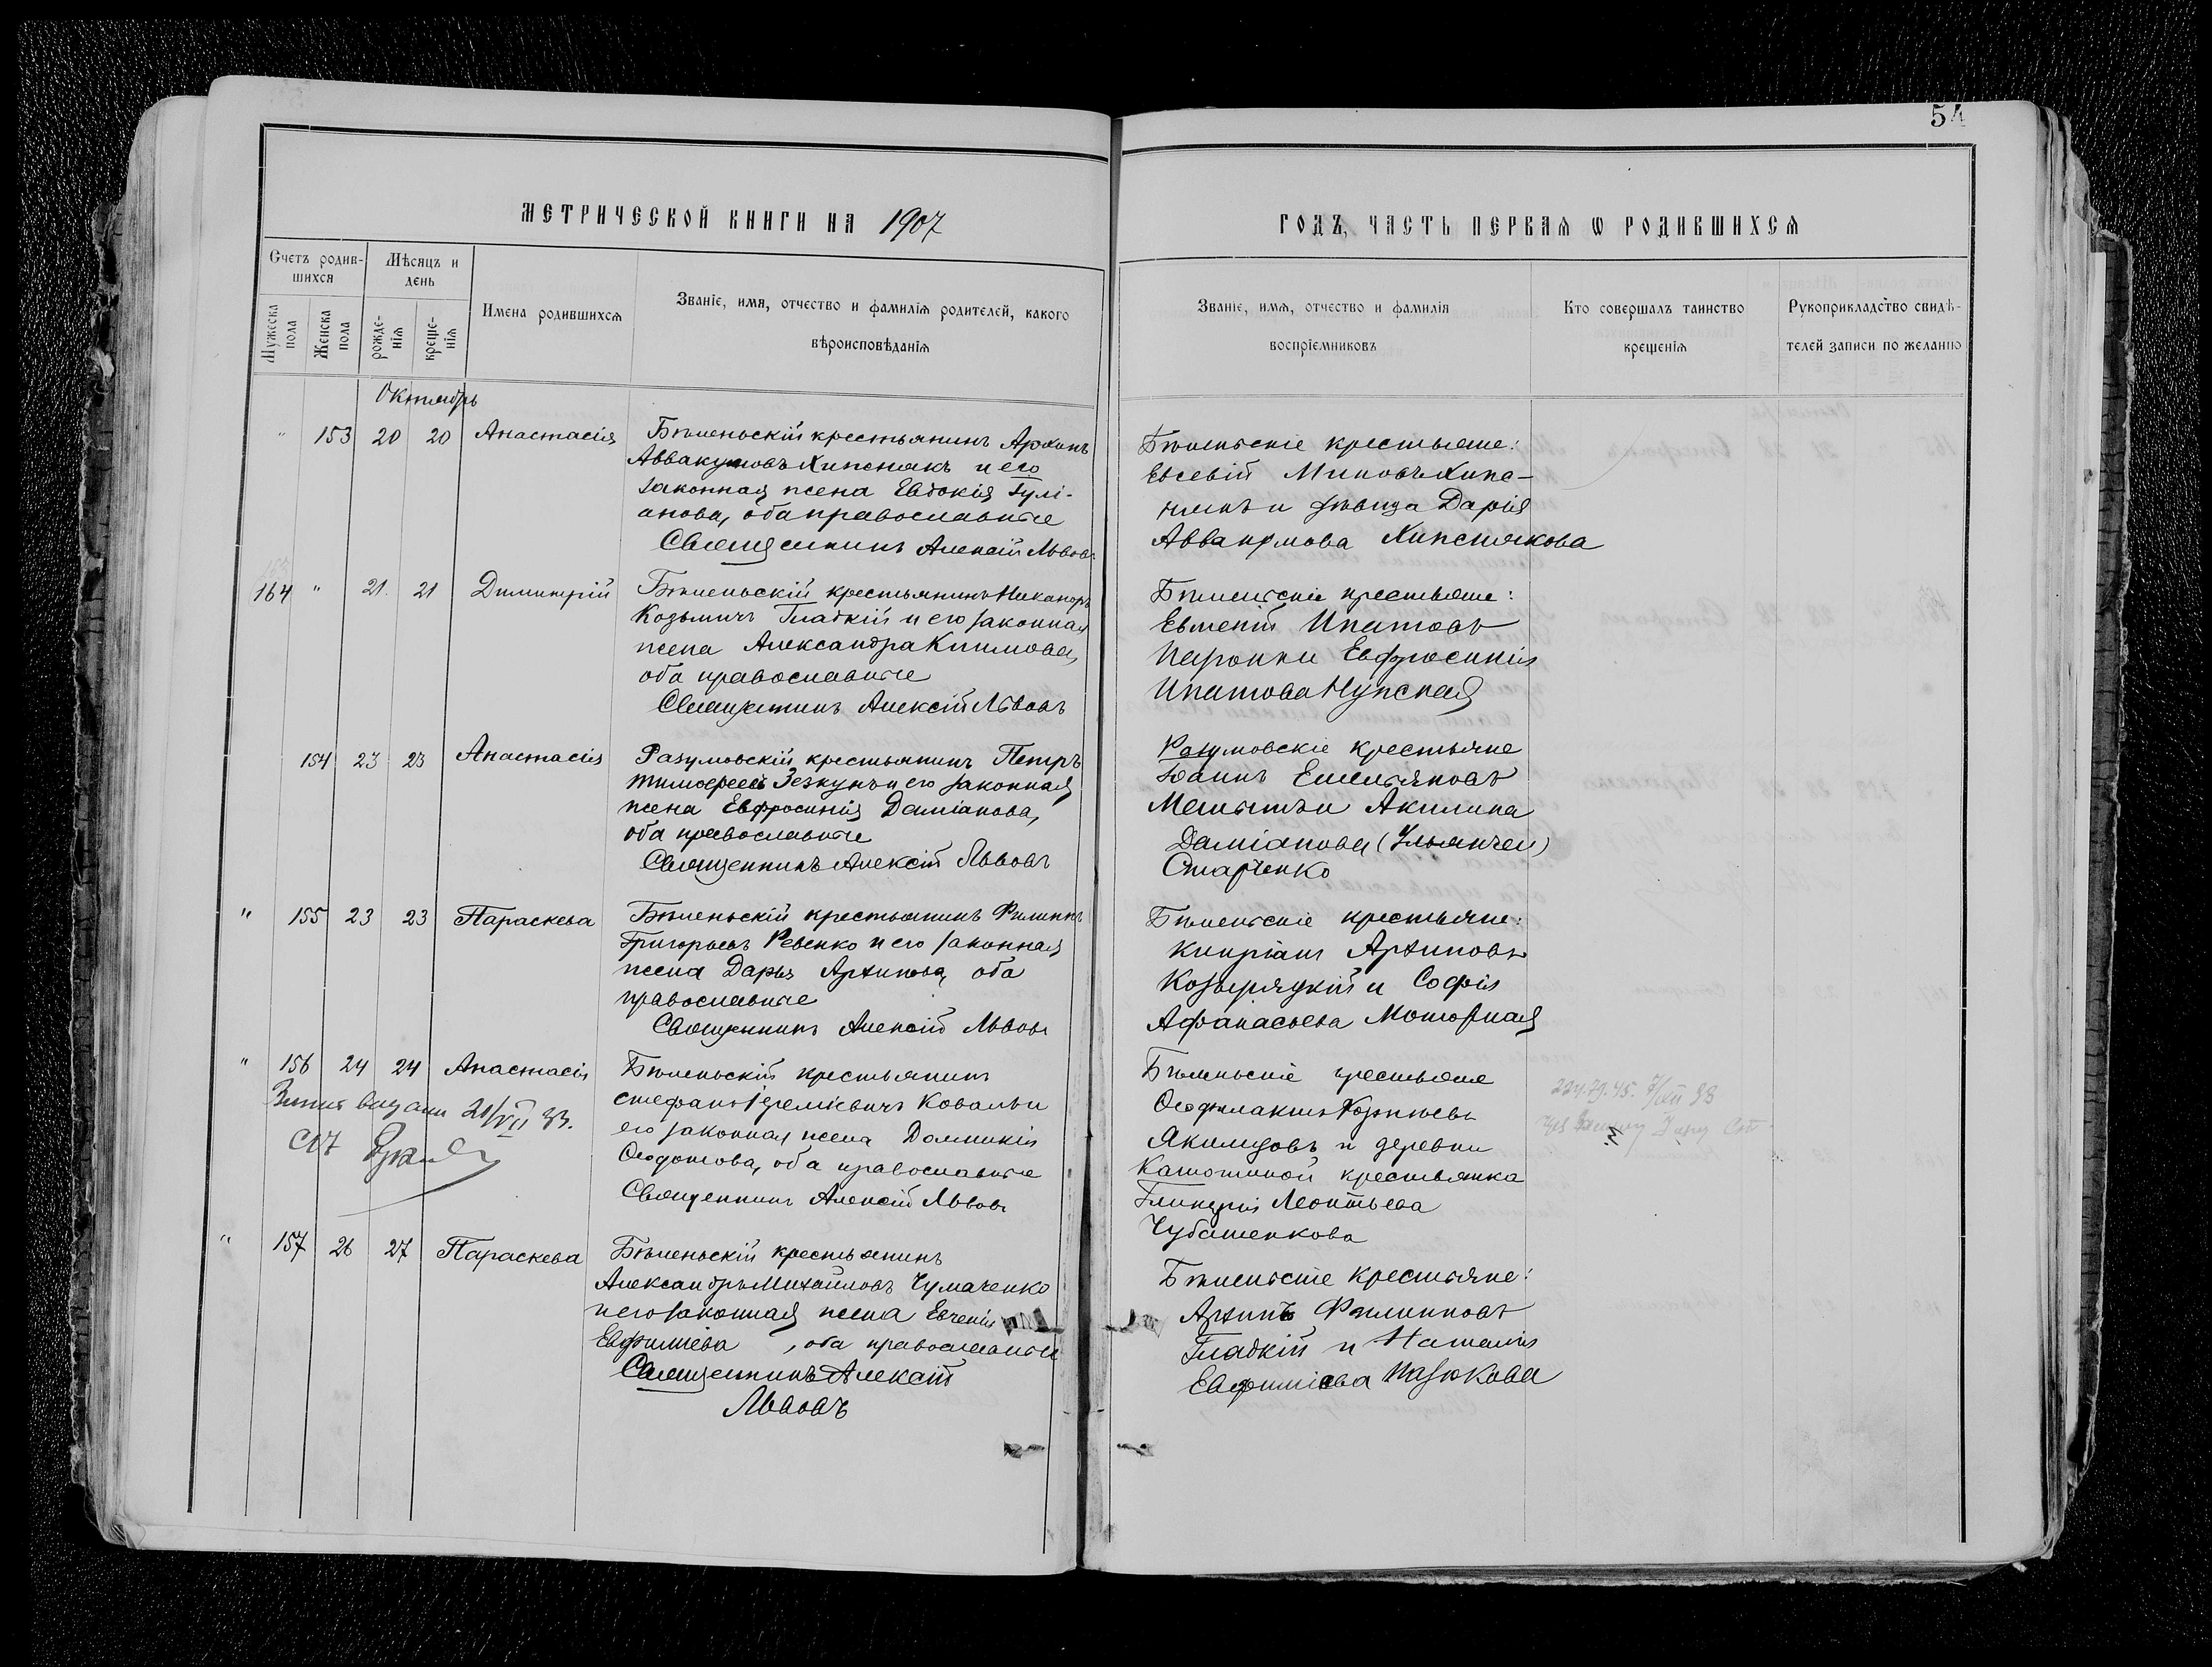 54
МЕТРИЧЕСКОЙ КНИГИ НА 1907
ГОДЪ, ЧАСТЬ ПЕРВАЯ Ѡ РОДИВШИХСЯ
Счетъ родив-
шихся
Мѣсяцъ и
день
Мужеска
пола
Женска
пола
рожде-
нія
креще-
нія
Имена родившихся
Званіе, имя, отчество и фамилія родителей, какого
вѣроисповѣданія
Званіе, имя, отчество и фамилія
воспріемниковъ
Кто совершалъ таинство
крещенія
Рукоприкладство свидѣ-
телей записи по желанію
Октябрь
" 153 20 20 Анастасія
Бѣленьскій крестьянинъ Архипъ
Аввакумовъ Хипснякъ и его
законная жена Евдокія Іулі-
анова, оба православные
Священникъ Алексій Львовъ
Бѣленьскіе крестьяне:
Евсевій Миновъ Хипс-
някъ и дѣвица Дарія
Аввакумова Хипснякова
164 " 21 21 Димитрій
Бѣленьскій крестьянинъ Никаноръ
Козьмичъ Гладкій и его законная
жена Александра Климова,
оба православные
Священникъ Алексій Львовъ
Бѣленьскіе крестьяне:
Евгеній Ипатовъ
Евфросинія
Ипатова Нужная
154 23 23 Анастасія
Разумовскій крестьянинъ Петръ
Тимофеевъ Зезкунъ и его законная
жена Евфросинія Даміанова,
оба православные
Священникъ Алексій Львовъ
Разумовскіе крестьяне
Іоаннъ Емельяновъ
и Акилина
Даміанова (Ульянчен)
Старченко
" 155 23 23 Параскева
Бѣленьскій крестьянинъ Филиппъ
Григорьевъ Ревенко и его законная
жена Дарья Архипова, оба
православные
Священникъ Алексій Львовъ
Бѣленьскіе крестьяне:
Кипріанъ Архиповъ
Козыряцкій и Софія
Афанасьева Моторная
" 156 24 24 Анастасія
Бѣленьскій крестьянинъ
Стефанъ Іереміевичъ Коваль и
его законная жена Домникія
Ѳеодотова, оба православные
Священникъ Алексій Львовъ
Бѣленьскіе крестьяне
Ѳеофилактъ
Якимцовъ и деревни
крестьянка
Гликерія Леонтьева
Чубатенкова
" 157 26 27 Параскева
Бѣленьскій крестьянинъ
Александръ Михайловъ Чумаченко
и его законная жена Евгенія
Евфиміева, оба православные
Священникъ Алексій
Львовъ
Бѣленьскіе крестьяне:
Архипъ Филипповъ
Гладкій и Наталія
Евфиміева Мазюкова